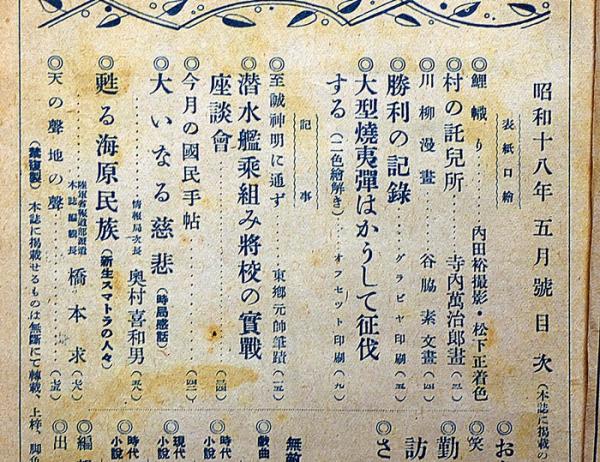 昭和十八年 五月號目次 (本誌に掲載の
表紙口繪
◎鯉幟り 內田裕撮影・松下正着色
◎村の託兒所 寺內萬治郎畫(三)
◎川柳漫畫 谷脇素文畫(四)
◎勝利の記錄 グラビヤ印刷(五)
◎大型燒夷彈はかうして征伐
する(二色繪解き) オフセツト印刷(九)
記事
◎至誠神明に通ず 東鄕元帥筆蹟(一五)
◎潜水艦乗組み將校の實戰
座談會(三四)
◎今月の國民手帖(四二)
◎大いなる慈悲(時局感話)
情報局次長 奥村喜和男(五八)
◎甦る海原民族(新生スマトラの人々)
陸軍省報道部派遣
本誌編輯長 橋本求(六八)
◎天の聲地の聲(七五)
(禁複製) 本誌に掲載せるものは無斷にて轉載、上梓、脚
◎お
◎笑
◎勤
訪
◎さ
無敵
◎戯曲
◎時代
小說
◎現代
小說
◎時代
小說
◎編
◎出